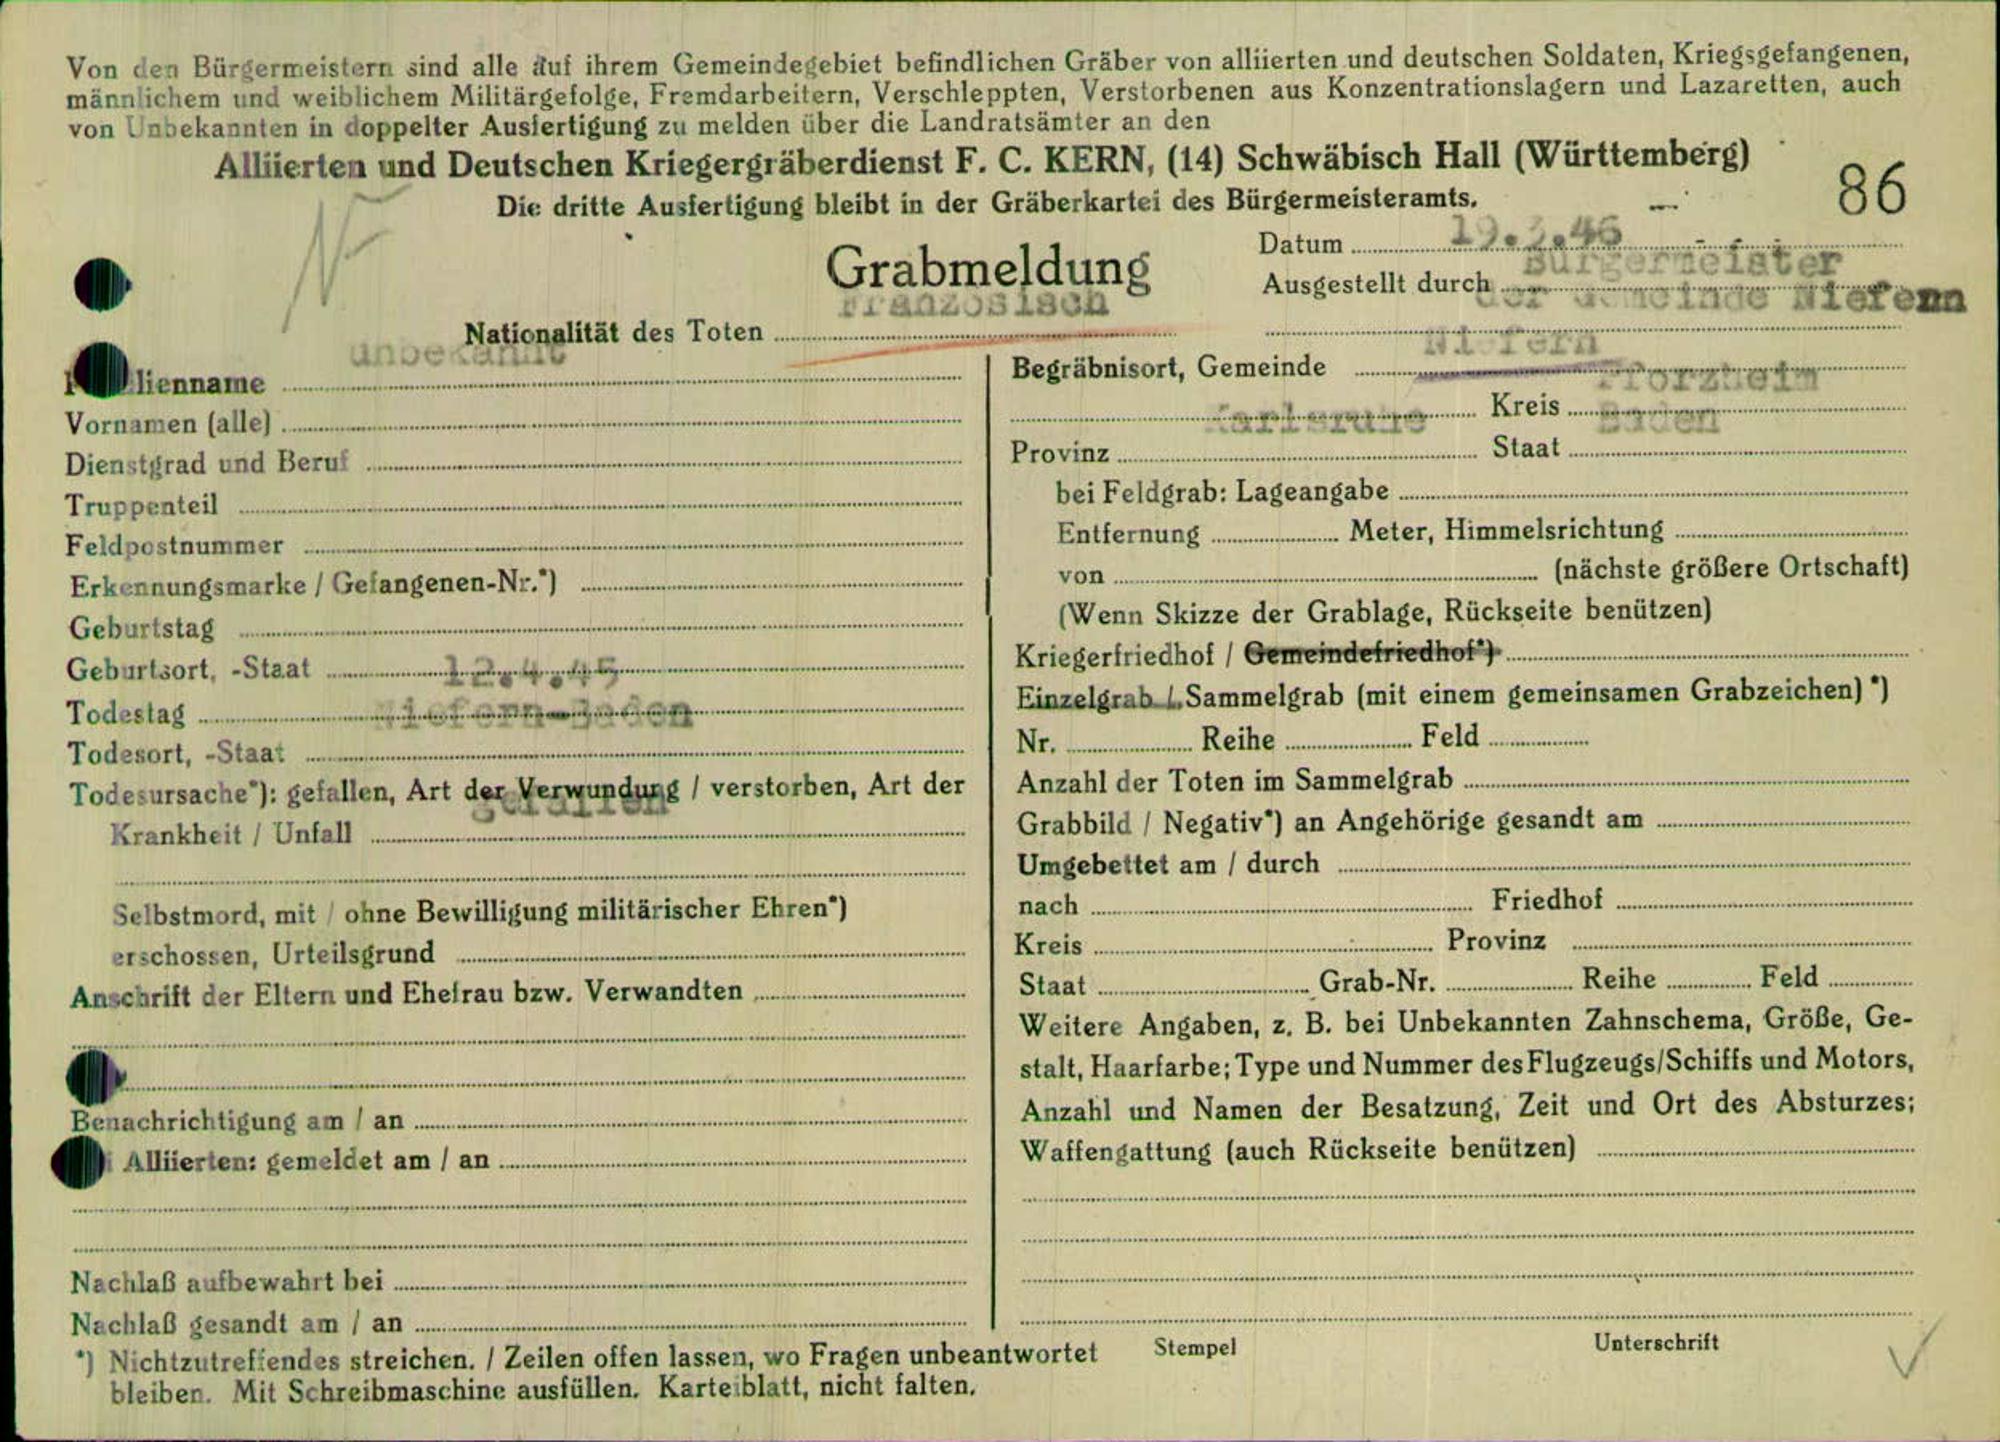 Von den Bürgermeistern sind alle auf ihrem Gemeindegebiet befindlichen Gräber von alliierten und deutschen Soldaten, Kriegsgefangenen,
männlichem und weiblichem Militärgefolge, Fremdarbeitern, Verschleppten, Verstorbenen aus Konzentrationslagern und Lazaretten, auch
von Unbekannten in doppelter Ausfertigung zu melden über die Landratsämter an den
Alliierten und Deutschen Kriegergräberdienst F. C. KERN, (14) Schwäbisch Hall (Württemberg)
86
Die dritte Ausfertigung bleibt in der Gräberkartei des Bürgermeisteramts.
Grabmeldung
Datum 19.2.46
Ausgestellt durch Bürgermeister
der Gemeinde Niefenn
Nationalität des Toten französisch
lienname unbekannt
Vornamen (alle)
Dienstgrad und Beruf
Truppenteil
Feldpostnummer
Erkennungsmarke / Gefangenen-Nr.*)
Geburtstag
Geburtsort, -Staat
12.4.45
Todestag
Niefern-Baden
Todesort, -Staat
Todesursache*): gefallen, Art der Verwundung / verstorben, Art der
gefallen
Krankheit / Unfall
Selbstmord, mit / ohne Bewilligung militärischer Ehren*)
erschossen, Urteilsgrund
Anschrift der Eltern und Ehefrau bzw. Verwandten
Benachrichtigung am / an
i Alliierten: gemeldet am / an
Nachlaß aufbewahrt bei
Nachlaß gesandt am / an
*) Nichtzutreffendes streichen. / Zeilen offen lassen, wo Fragen unbeantwortet
bleiben. Mit Schreibmaschine ausfüllen. Karteiblatt, nicht falten.
Niefern
Begräbnisort, Gemeinde
Pforzheim
Kreis
Karlsruhe Baden
Provinz Staat
bei Feldgrab: Lageangabe
Entfernung Meter, Himmelsrichtung
von (nächste größere Ortschaft)
(Wenn Skizze der Grablage, Rückseite benützen)
Kriegerfriedhof / Gemeindefriedhof*)
Einzelgrab / Sammelgrab (mit einem gemeinsamen Grabzeichen) *)
Nr. Reihe Feld
Anzahl der Toten im Sammelgrab
Grabbild / Negativ*) an Angehörige gesandt am
Umgebettet am / durch
nach Friedhof
Kreis Provinz
Staat Grab-Nr. Reihe Feld
Weitere Angaben, z. B. bei Unbekannten Zahnschema, Größe, Ge-
stalt, Haarfarbe; Type und Nummer des Flugzeugs/Schiffs und Motors,
Anzahl und Namen der Besatzung, Zeit und Ort des Absturzes;
Waffengattung (auch Rückseite benützen)
Stempel Unterschrift